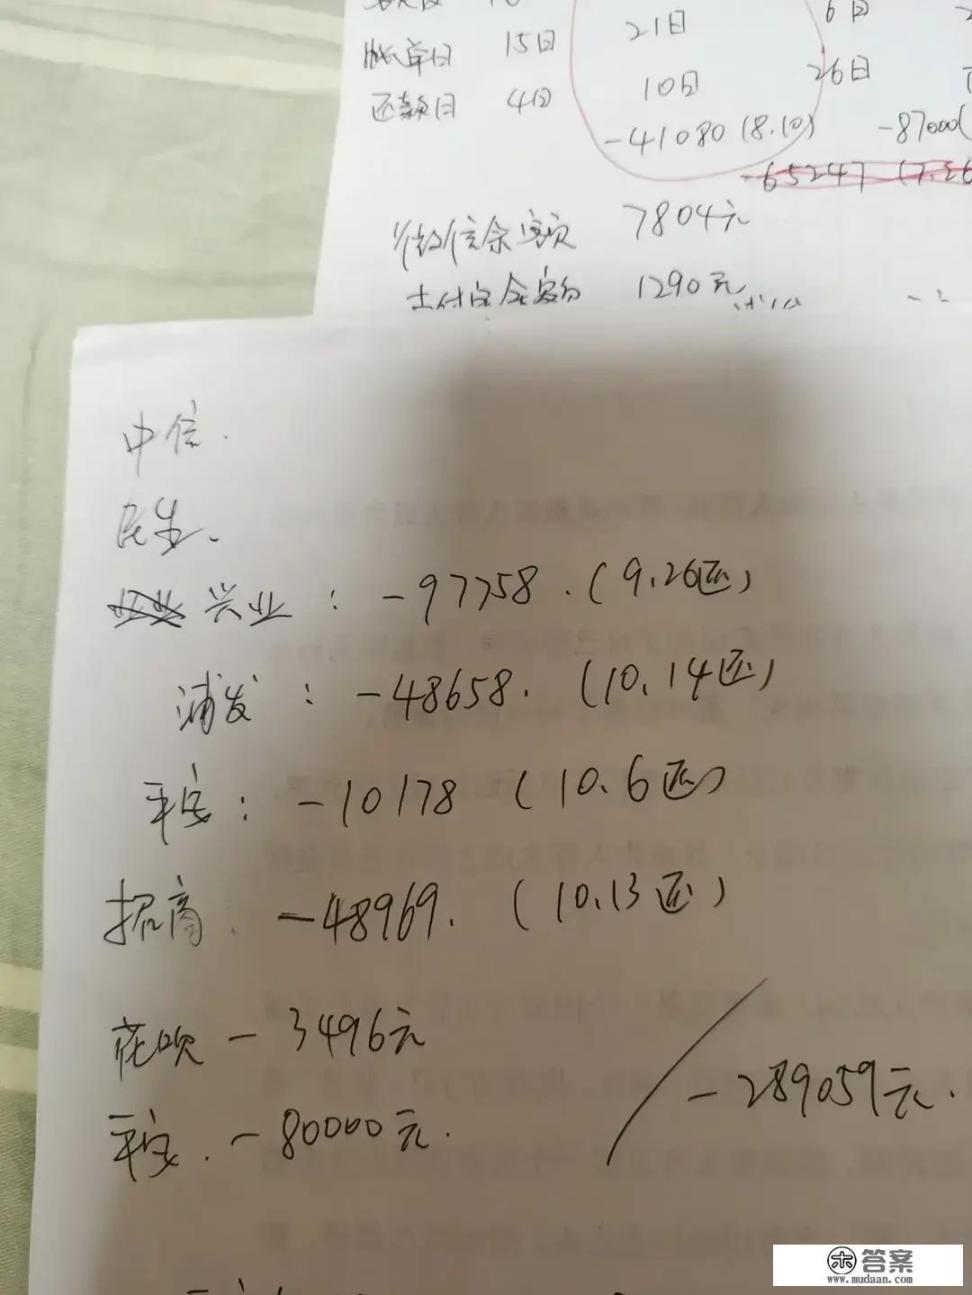 账单日 15日 21日 6日
还款日 4日 10日 26日
-41080(8.10) -87000(
-65247 (7.26
微信余额 7804元
支付宝余额 1290元
中信.
民生.
兴业: -97758.(9.26还)
浦发: -48658.(10.14还)
平安: -10178 (10.6还)
招商. -48969. (10.13还)
花呗 -3496元
平安. -80000元.
/ -289059元.
答案
www.mudaan.com